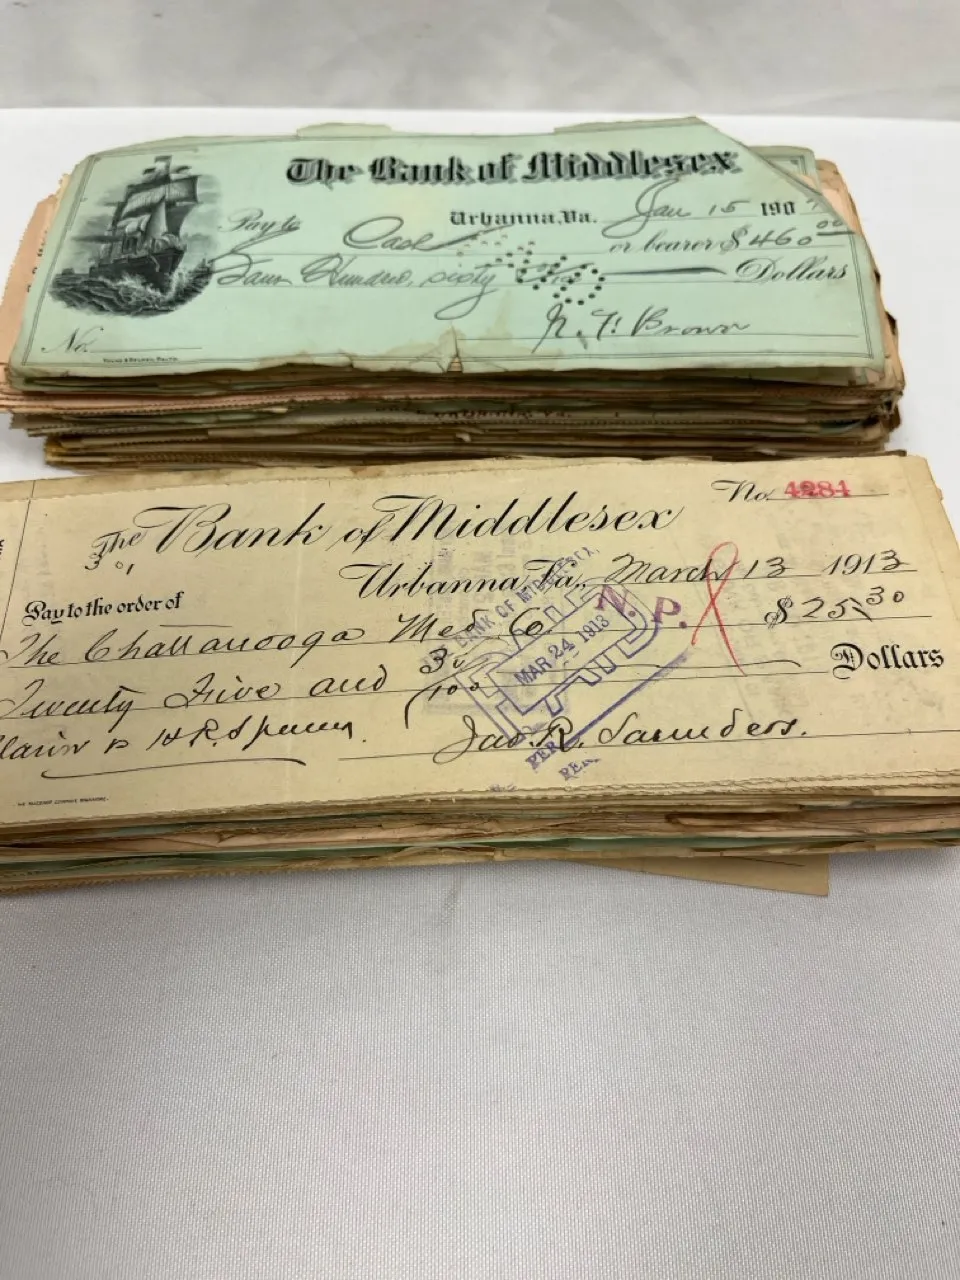 The Bank of Middlesex
Urbanna, Va. Jan 15 190
Pay to Cash or bearer $ 460 00
Four Hundred, sixty Dollars
N. F. Brown
No.
No. 4284
The Bank of Middlesex
Urbanna, Va., March 13 1913
Pay to the order of $ 25 30
The Chattanooga Med. Co.
Twenty Five and 30/100 Dollars
H. R. Jas. R. Saunders.
BANK OF MIDDLESEX,
PAID
MAR 24 1913
N. P.
PER
PER